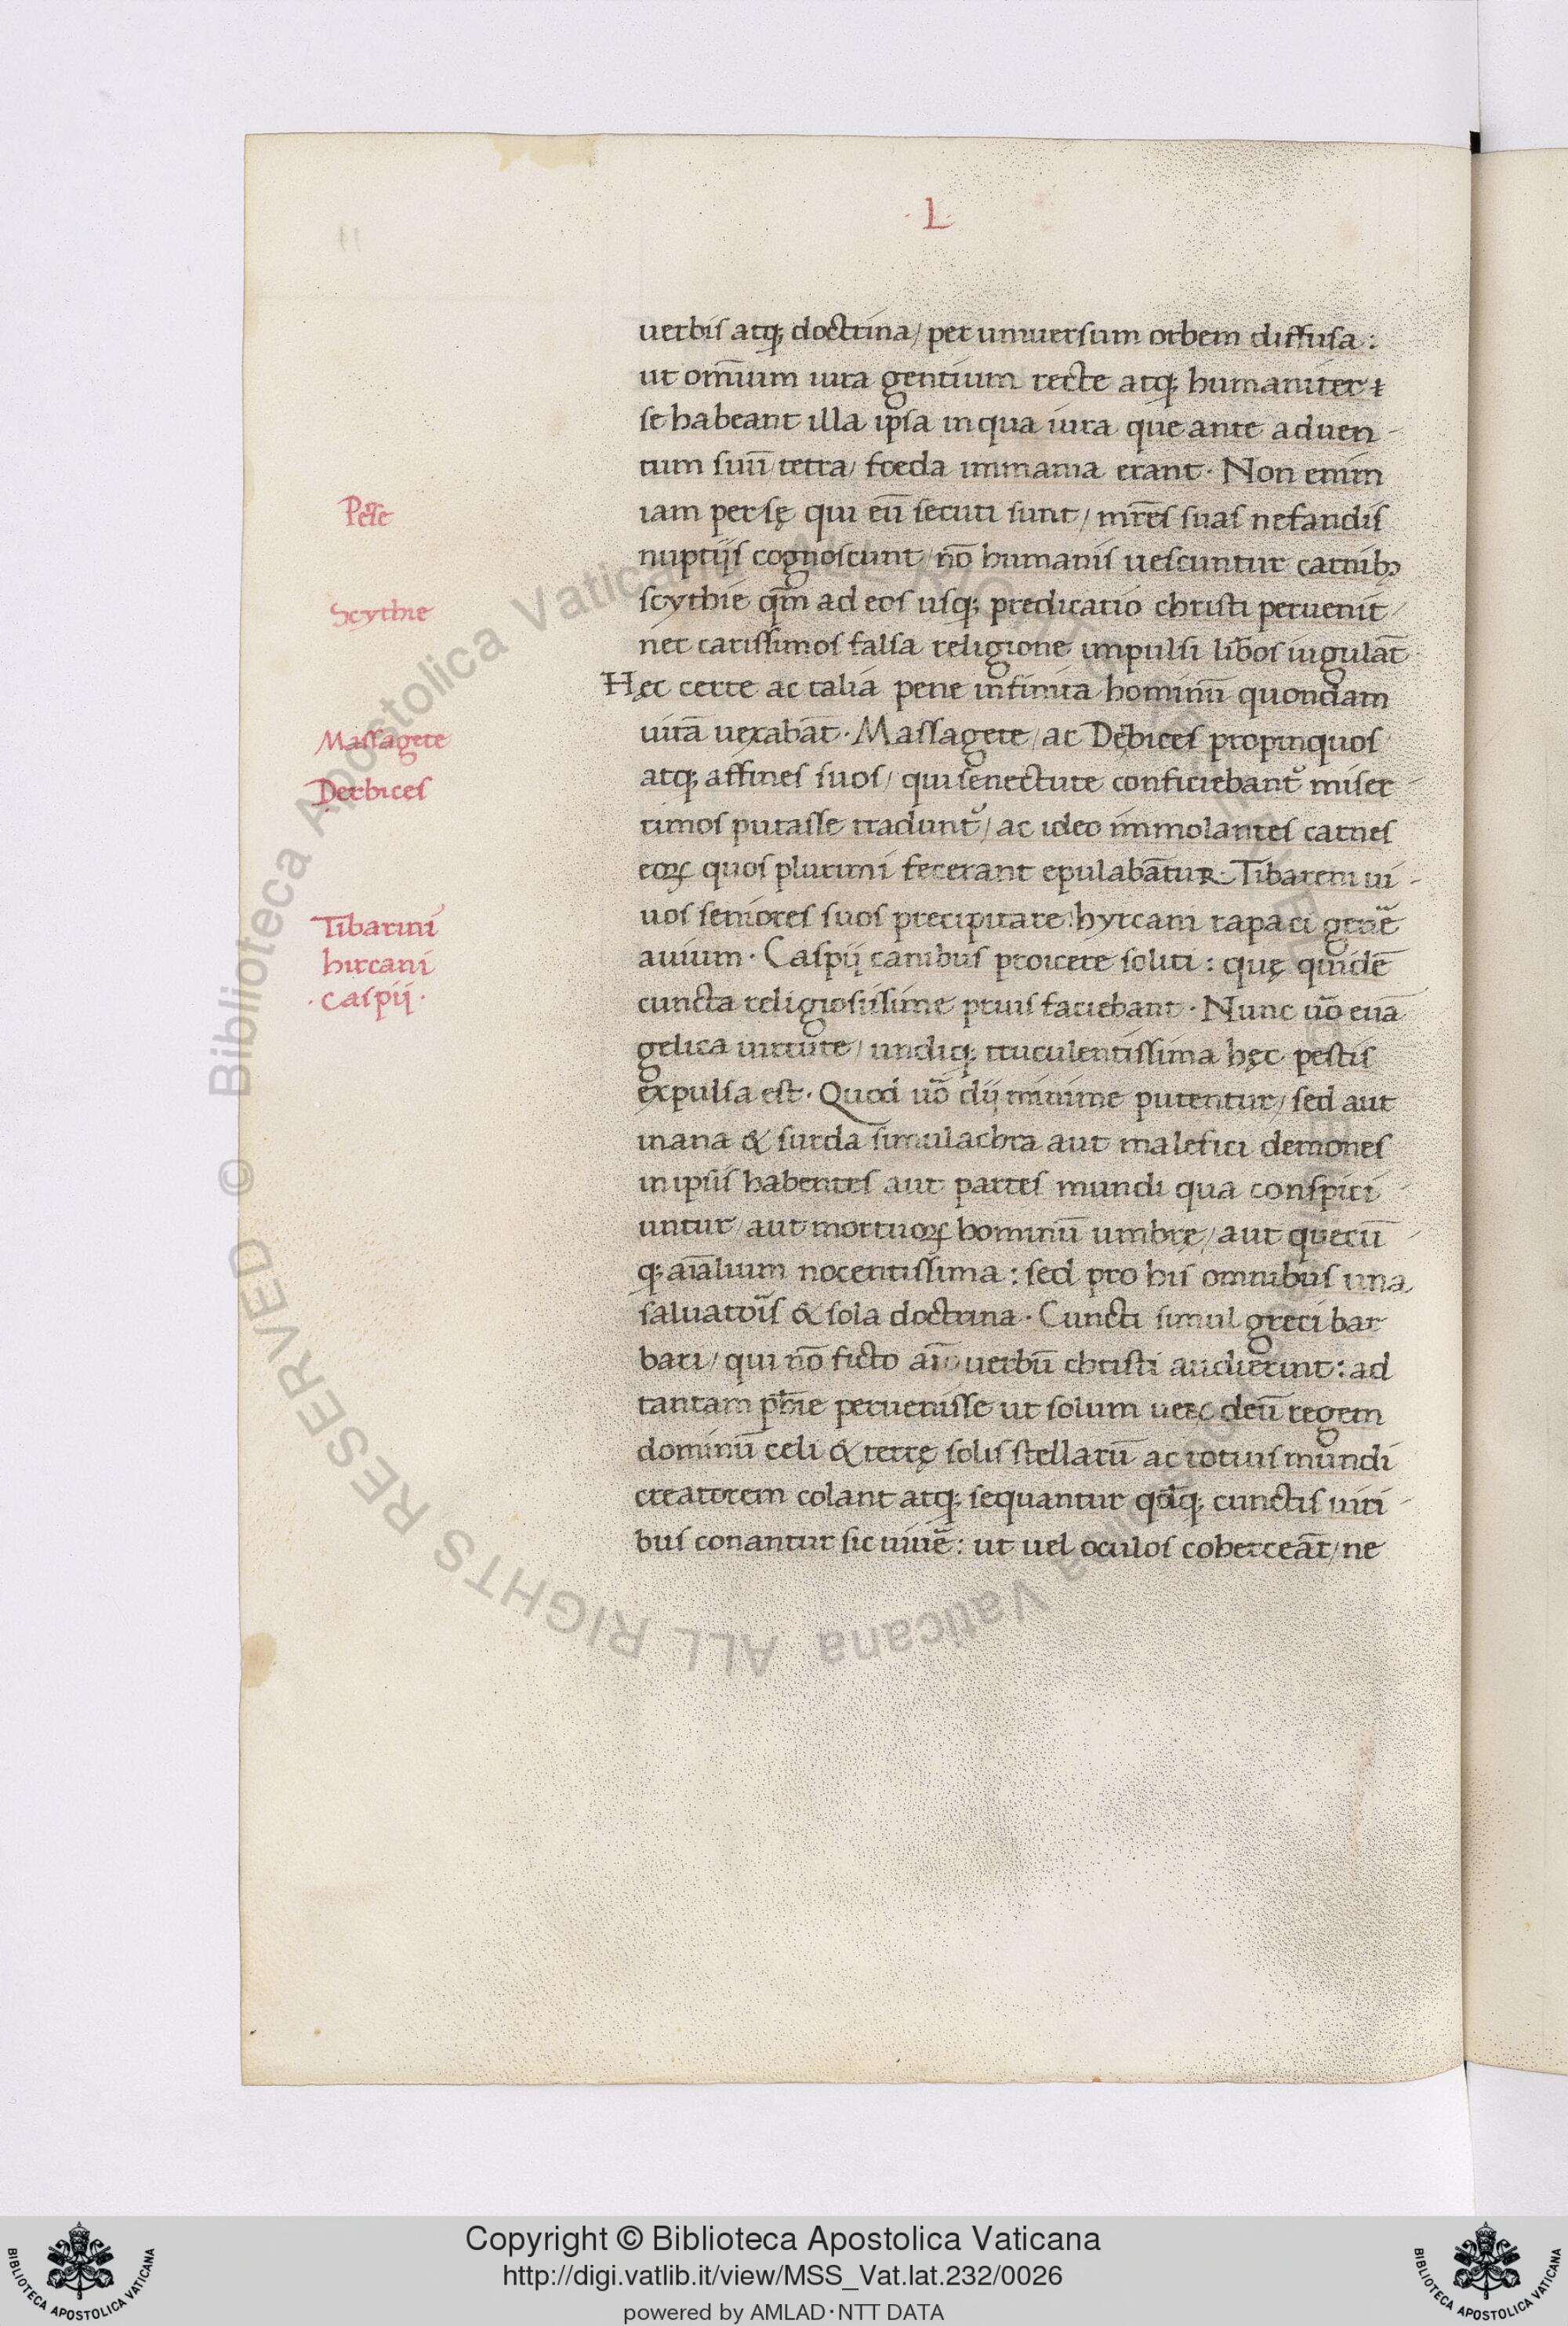 · L ·
uerbis atq; doctrina / per uniuersum orbem diffusa :
ut om̅ium iura gentium recte atq; humaniter
se habeant illa ip̅sa inqua iura que ante aduen-
tum suu̅ tetra / foeda immania erant · Non enim
Pe̅rse
iam persę qui eu̅ secuti sunt / mr̅es suas nefandis
nuptijs cognoscunt / no̅ humanis uescuntur carnibꝫ
Scythie
scythie qm̅ ad eos usq; predicatio christi peruenit /
nec carissimos falsa religione impulsi lib̅os iugula̅t
Hęc certe ac talia pene infinita hominu̅ quondam
Massagete
uita̅ uexaba̅t · Massagete / ac Derbices propinquos
Derbices
atq; affines suos / qui senectute conficiebant᷑ miser-
rimos putasse tradunt᷑ / ac ideo immolantes carnes
eoꝝ quos plurimi fecerant epulaba̅tur · Tibareni ui-
Tibarini
uos seniores suos precipitare : hyrcani rapaci gn̅e
hircani
auium · Caspij canibus proicere soliti : quę quide̅
· caspij ·
cuncta religiosissime prius faciebant · Nunc uo̅ eua̅
gelica uirtute / undiq; truculentissima hęc pestis
expulsa est · Quod uo̅ dij minime putentur / sed aut
inana & surda simulachra aut malefici demones
inipsis habentes aut partes mundi qua conspici-
untur / aut mortuoꝝ hominu̅ umbrę / aut quecu̅
q; aia̅lium nocentissima : sed pro his omnibus una
saluator̅is & sola doctrina · Cuncti simul greci bar
bari / qui no̅ ficto ai̅o uerbu̅ christi audierint : ad
tantam ph̅ie peruenisse ut solum ueꝝ deu̅ regem
dominu̅ celi & terrę solis stellaru̅ ac totius mundi
creatorem colant atq; sequantur qd̅q; cunctis uiri-
bus conantur sic uiue̅ : ut uel oculos coherceа̅t / ne
Copyright © Biblioteca Apostolica Vaticana
http://digi.vatlib.it/view/MSS_Vat.lat.232/0026
powered by AMLAD·NTT DATA
BIBLIOTECA APOSTOLICA VATICANA
BIBLIOTECA APOSTOLICA VATICANA